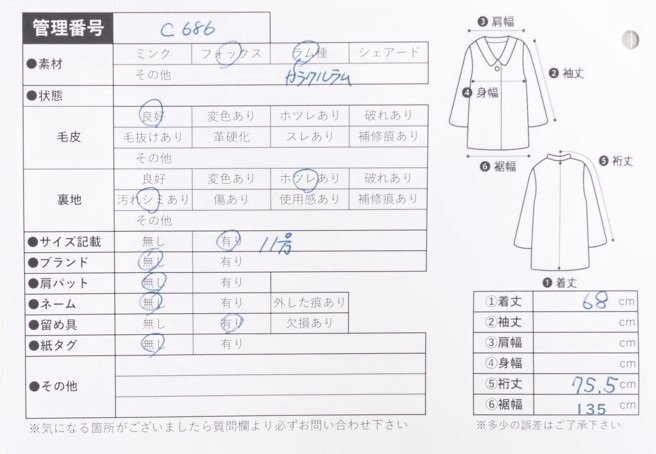 管理番号 C 686
●素材 ミンク フォックス ラム種 シェアード
その他 カラクルラム
●状態
毛皮 良好 変色あり ホツレあり 破れあり
毛抜けあり 革硬化 スレあり 補修痕あり
その他
裏地 良好 変色あり ホツレあり 破れあり
汚れシミあり 傷あり 使用感あり 補修痕あり
その他
●サイズ記載 無し 有り 11号
●ブランド 無し 有り
●肩パット 無し 有り
●ネーム 無し 有り 外した痕あり
●留め具 無し 有り 欠損あり
●紙タグ 無し 有り
●その他
※気になる箇所がございましたら質問欄より必ずお問い合わせ下さい
❸肩幅
❷袖丈
❹身幅
❻裾幅
❺裄丈
❶着丈
①着丈 68 cm
②袖丈 cm
③肩幅 cm
④身幅 cm
⑤裄丈 75.5 cm
⑥裾幅 135 cm
※多少の誤差はご了承下さい